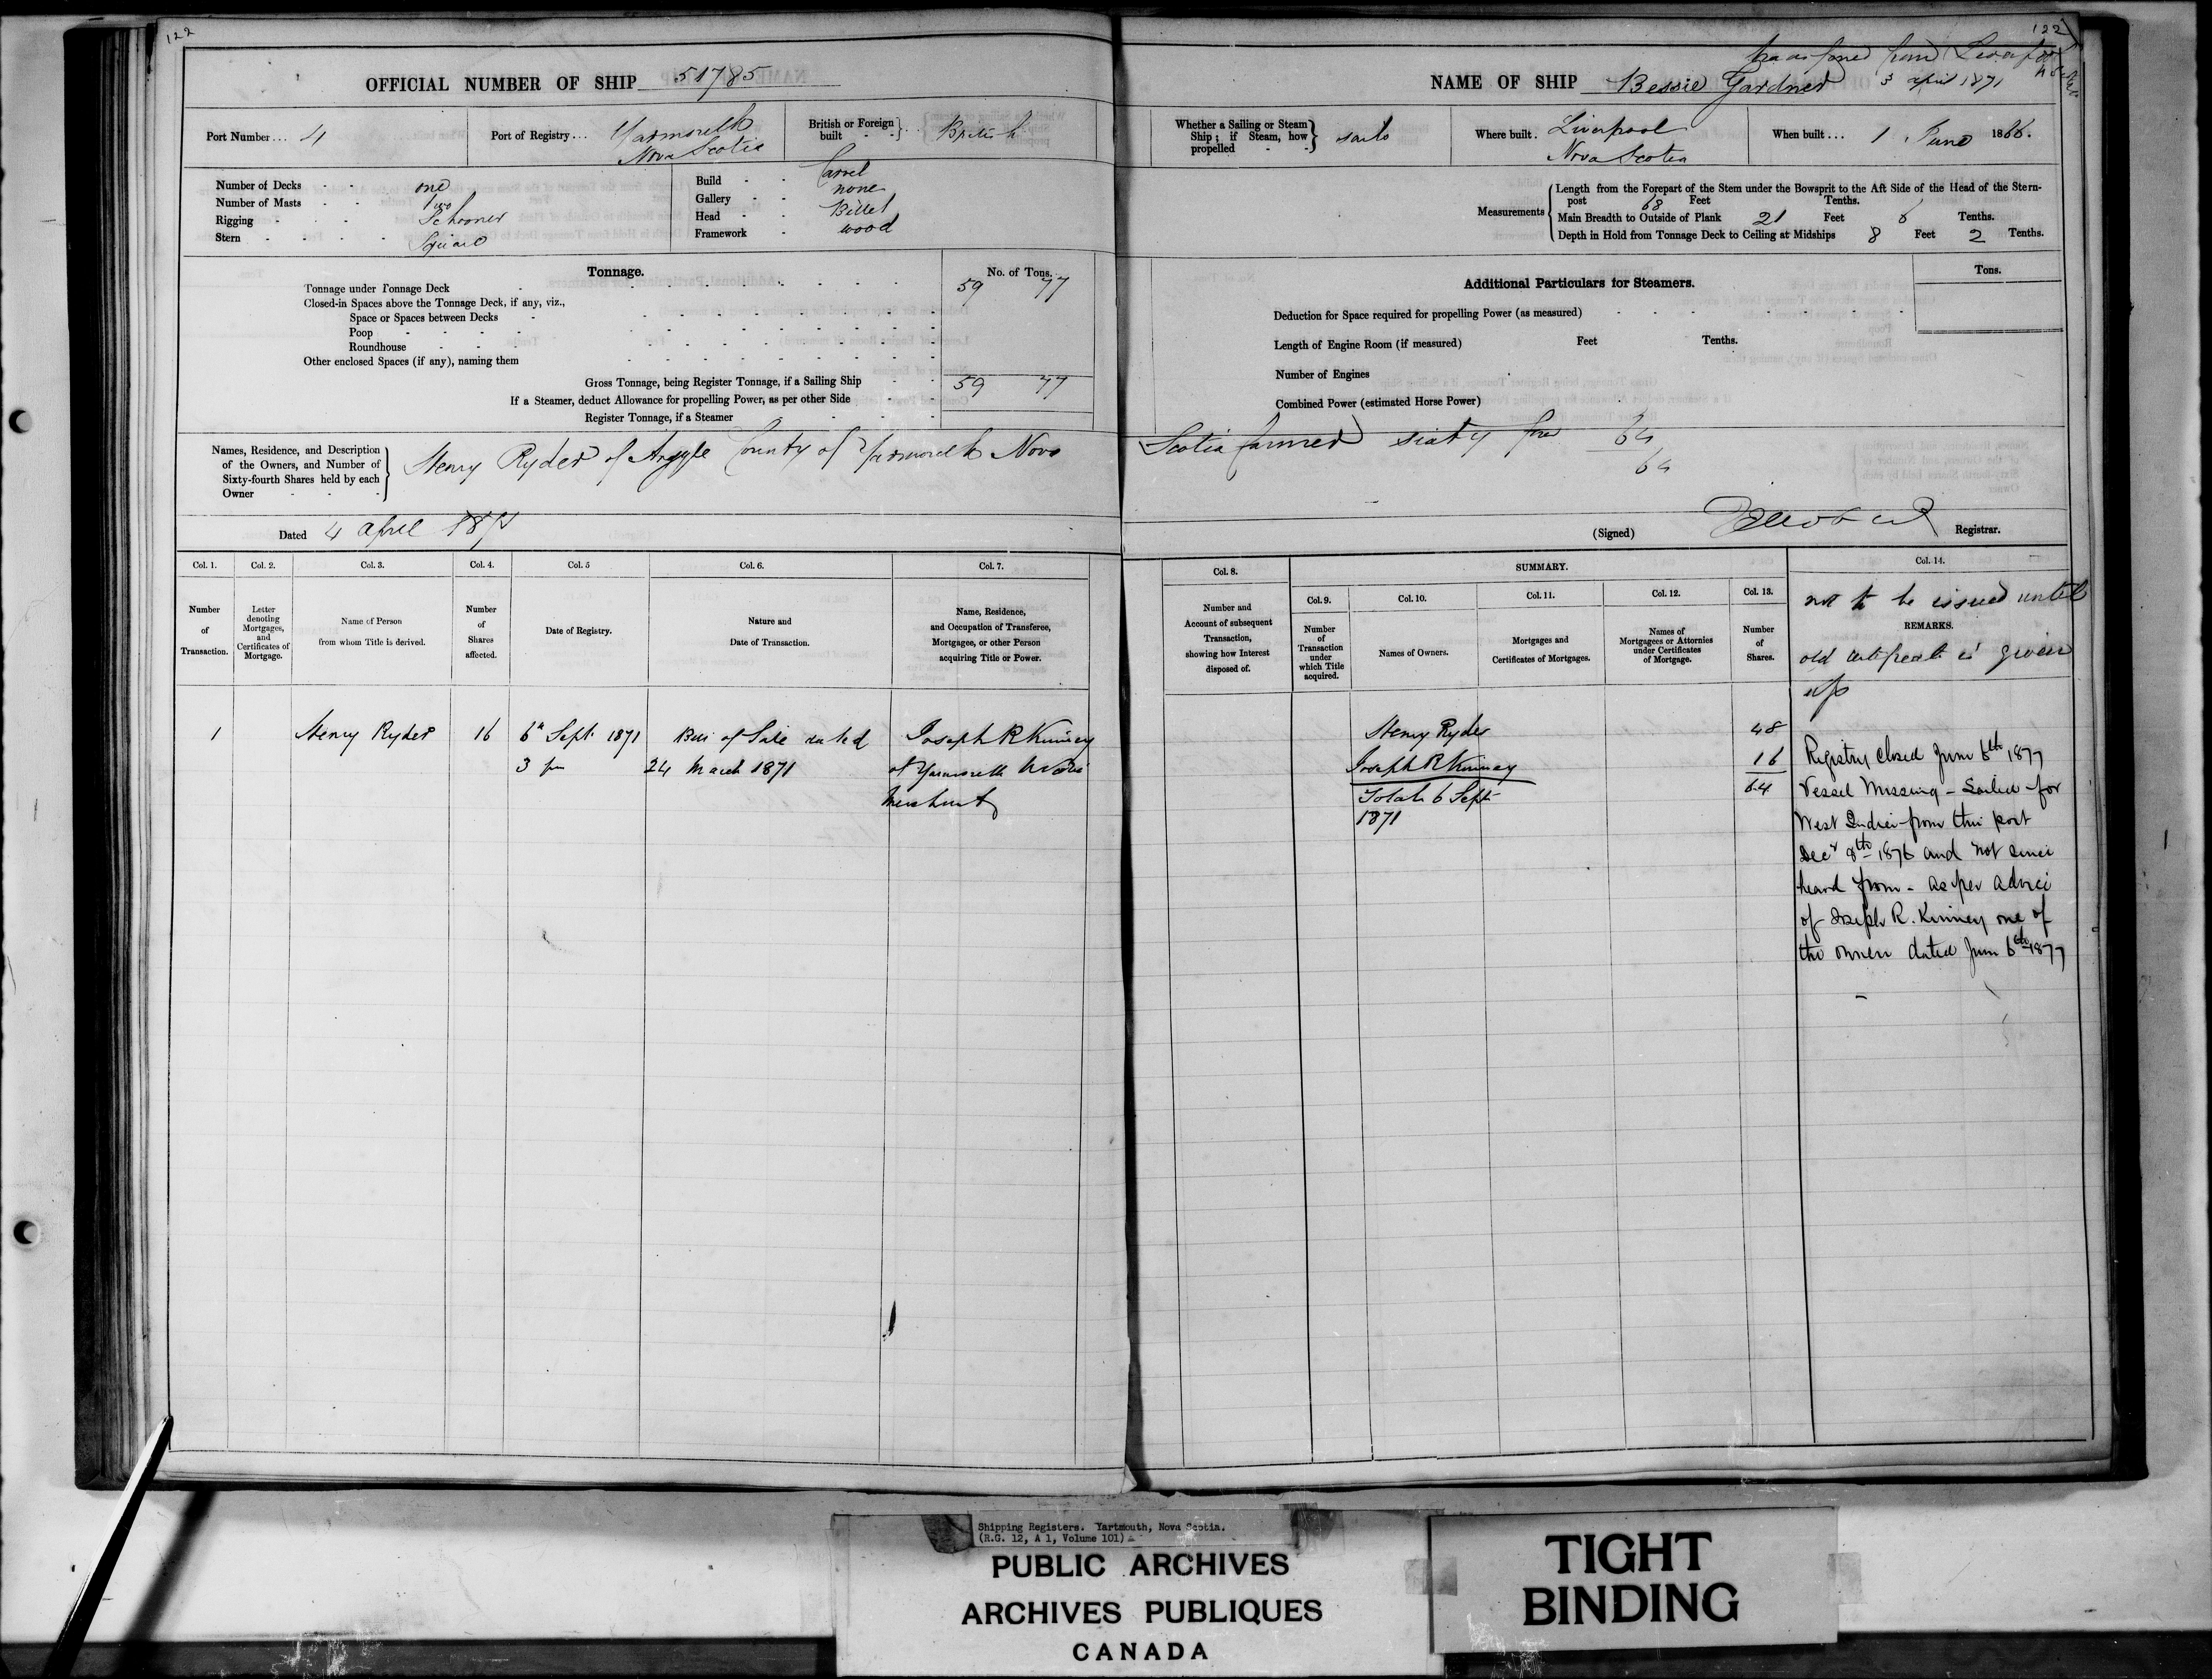 122
OFFICIAL NUMBER OF SHIP 51785
Port Number... 4
Port of Registry... Yarmouth
Nova Scotia
British or Foreign built British
Number of Decks one
Number of Masts two
Rigging Schooner
Stern Square
Build Carvel
Gallery none
Head Billet
Framework wood
Tonnage.
No. of Tons.
Tonnage under Tonnage Deck 59 77
Closed-in Spaces above the Tonnage Deck, if any, viz.,
Space or Spaces between Decks
Poop
Roundhouse
Other enclosed Spaces (if any), naming them
Gross Tonnage, being Register Tonnage, if a Sailing Ship 59 77
If a Steamer, deduct Allowance for propelling Power, as per other Side
Register Tonnage, if a Steamer
Names, Residence, and Description
of the Owners, and Number of
Sixty-fourth Shares held by each
Owner
Henry Ryder of Argyle County of Yarmouth Nova
Dated 4 April 1871
Col. 1.
Number
of
Transaction.
Col. 2.
Letter
denoting
Mortgages,
and
Certificates of
Mortgage.
Col. 3.
Name of Person
from whom Title is derived.
Col. 4.
Number
of
Shares
affected.
Col. 5
Date of Registry.
Col. 6.
Nature and
Date of Transaction.
Col. 7.
Name, Residence,
and Occupation of Transferee,
Mortgagee, or other Person
acquiring Title or Power.
1
Henry Ryder
16
6th Sept 1871
3 pm
Bill of Sale dated
24 March 1871
Joseph R Kinney
of Yarmouth N Scotia
Merchant
122
transferred from Liverpool
3 April 1871
NAME OF SHIP Bessie Gardner
Whether a Sailing or Steam
Ship; if Steam, how
propelled
sails
Where built. Liverpool
Nova Scotia
When built... 1 June 1866.
Measurements
Length from the Forepart of the Stem under the Bowsprit to the Aft Side of the Head of the Stern-
post 68 Feet Tenths.
Main Breadth to Outside of Plank 21 Feet 6 Tenths.
Depth in Hold from Tonnage Deck to Ceiling at Midships 8 Feet 2 Tenths.
Additional Particulars for Steamers.
Tons.
Deduction for Space required for propelling Power (as measured)
Length of Engine Room (if measured) Feet Tenths.
Number of Engines
Combined Power (estimated Horse Power)
Scotia farmer sixty four 64
64
(Signed)
Registrar.
Col. 8.
Number and
Account of subsequent
Transaction,
showing how Interest
disposed of.
SUMMARY.
Col. 9.
Number
of
Transaction
under
which Title
acquired.
Col. 10.
Names of Owners.
Col. 11.
Mortgages and
Certificates of Mortgages.
Col. 12.
Names of
Mortgagees or Attornies
under Certificates
of Mortgage.
Col. 13.
Number
of
Shares.
Col. 14.
not to be issued until
REMARKS.
old certificate is given
up
Henry Ryder 48
Joseph R Kinney 16
Total 6 Sept 64
1871
Registry closed June 6th 1877
Vessel Missing - Sailed for
West Indies from this port
Decr 8th 1876 and not since
heard from - as per advice
of Joseph R. Kinney one of
the owners dated June 6th 1877
Shipping Registers. Yartmouth, Nova Scotia.
(R.G. 12, A 1, Volume 101)
PUBLIC ARCHIVES
ARCHIVES PUBLIQUES
CANADA
TIGHT
BINDING